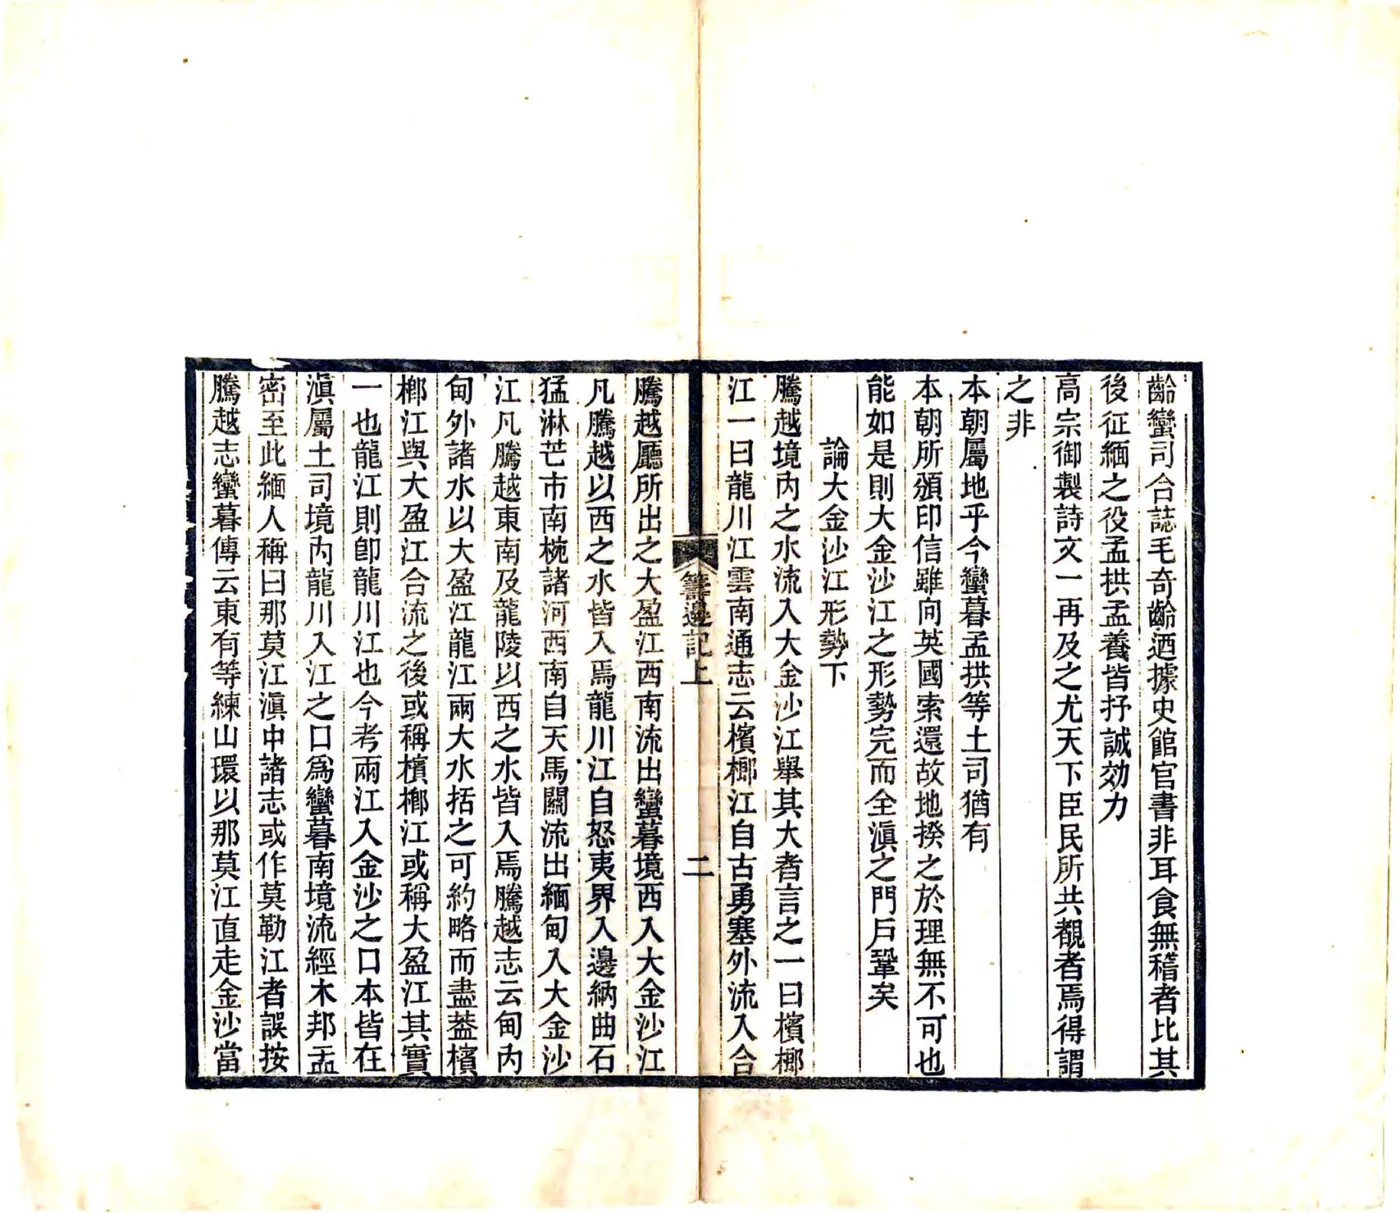 齡蠻司合誌毛奇齡迺據史館官書非耳食無稽者比其
後征緬之役孟拱孟養皆抒誠効力
高宗御製詩文一再及之尤天下臣民所共覩者焉得謂
之非
本朝屬地乎今蠻暮孟拱等土司猶有
本朝所頒印信雖向英國索還故地揆之於理無不可也
能如是則大金沙江之形勢完而全滇之門戶鞏矣
論大金沙江形勢下
騰越境內之水流入大金沙江舉其大者言之一曰檳榔
江一曰龍川江雲南通志云檳榔江自古勇塞外流入合
籌邊記上
二
騰越廳所出之大盈江西南流出蠻暮境西入大金沙江
凡騰越以西之水皆入焉龍川江自怒夷界入邊納曲石
猛淋芒市南椀諸河西南自天馬關流出緬甸入大金沙
江凡騰越東南及龍陵以西之水皆入焉騰越志云甸內
甸外諸水以大盈江龍江兩大水括之可約略而盡葢檳
榔江與大盈江合流之後或稱檳榔江或稱大盈江其實
一也龍江則卽龍川江也今考兩江入金沙之口本皆在
滇屬土司境內龍川入江之口爲蠻暮南境流經木邦孟
密至此緬人稱曰那莫江滇中諸志或作莫勒江者誤按
騰越志蠻暮傳云東有等練山環以那莫江直走金沙當